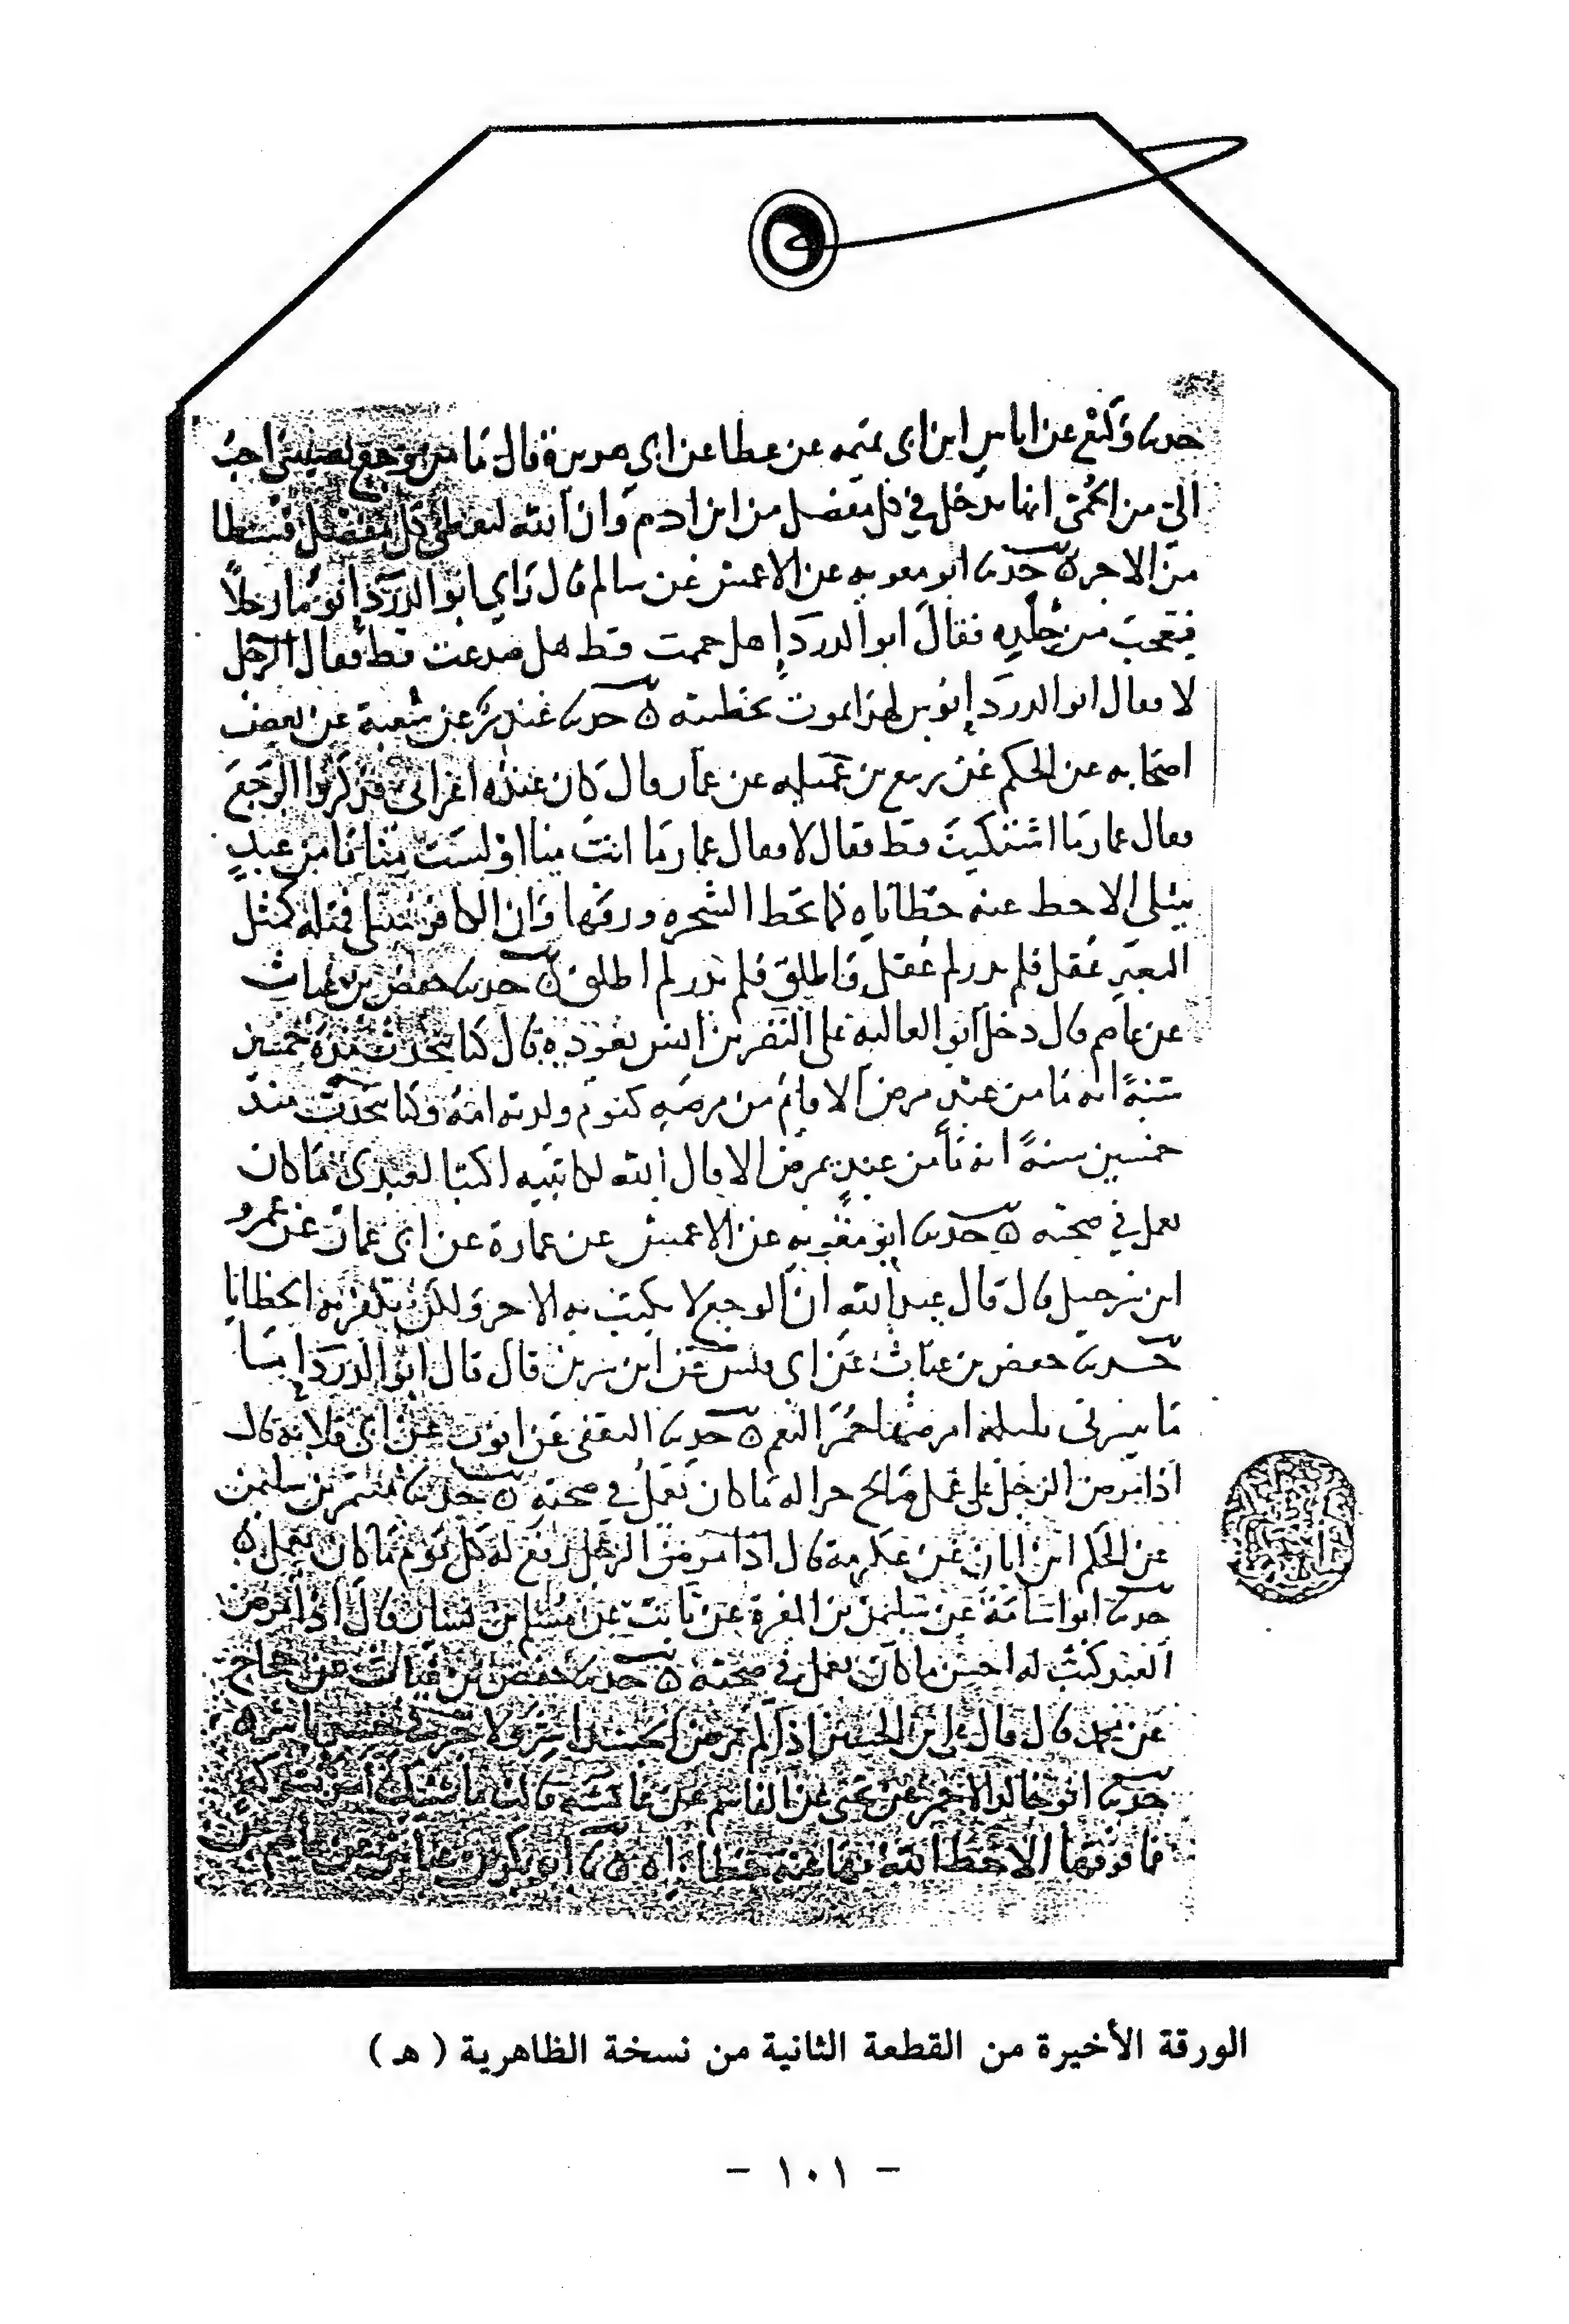 حدثنا وكيع عن اياس ابن ابى تميمه عن عطا عن ابي هريرة قال ما من وجع يصيبني احب
الي من الحمى انها تدخل في كل مفصل من ابن ادم وان الله ليعطي كل مفصل قسطا
من الاجر ه حدثنا ابو معويه عن الاعمش عن سالم قال راي ابو الدرداء يوما رجلا
فتعجب من جلده فقال ابو الدرداء هل حممت قط هل صدعت قط فقال الرجل
لا فقال ابو الدرداء بوس لهذا يموت بخطيته ه حدثنا غندر عن شعبة عن بعض
اصحابه عن الحكم عن ربيع بن عميله عن عمار قال كان عنده اعرابي فذكروا الوجع
فقال عمار ما اشتكيت قط فقال لا فقال عمار ما انت منا او لست منا ما من عبد
يبتلى الا حط عنه خطاياه كما تحط الشجره ورقها وان الكافر يبتلى فمثله كمثل
البعير عقل فلم يدر لم عقل فاطلق فلم يدر لم اطلق ه حدثنا حفص بن غياث
عن عاصم قال دخل ابو العاليه على النضر بن انس يعوده قال كنا نتحدث منذ خمسين
سنة انه ما من عبد مرض الا قام من مرضه كيوم ولدته امه وكنا نتحدث منذ
خمسين سنة انه ما من عبد يمرض الا قال الله لكاتبيه اكتبا لعبدي ما كان
يعمل في صحته ه حدثنا ابو معويه عن الاعمش عن عمارة عن ابى عمار عن عمرو
ابن شرحبيل قال قال عبد الله ان الوجع لا يكتب به الاجر ولكن تكفر به الخطايا
حدثنا حفص بن غياث عن ابى عن ابن سرين قال قال ابو الدرداء
ما يسرنى بليلة امرضها حمر النعم ه حدثنا الثقفى عن ايوب عن ابى قلابة قال
اذا مرض الرجل على عمل صالح جرا له ما كان يعمل في صحته ه حدثنا معتمر بن سليمن
عن الحكم ابن ابان عن عكرمة قال اذا مرض الرجل رفع له كل يوم ما كان يعمل ه
حدثنا ابو اسامة عن سليمن بن المغيرة عن ثابت عن مسلم بن يسار قال اذا مرض
العبد كتب له احسن ما كان يعمل في صحته ه حدثنا حفص بن غياث عن حجاج
عن قال قال علي بن الحسين اذا لم يمرض الجسد اشر ولا خير في جسد
حدثنا ابو خالد الاحمر عن يحيى عن القاسم عن عائشة قالت ما
فما فوقها الا حط الله بها عنه خطاياه ه ابو بكر بن عياش عن عاصم عن
الورقة الأخيرة من القطعة الثانية من نسخة الظاهرية ( هـ )
- ١٠١ -